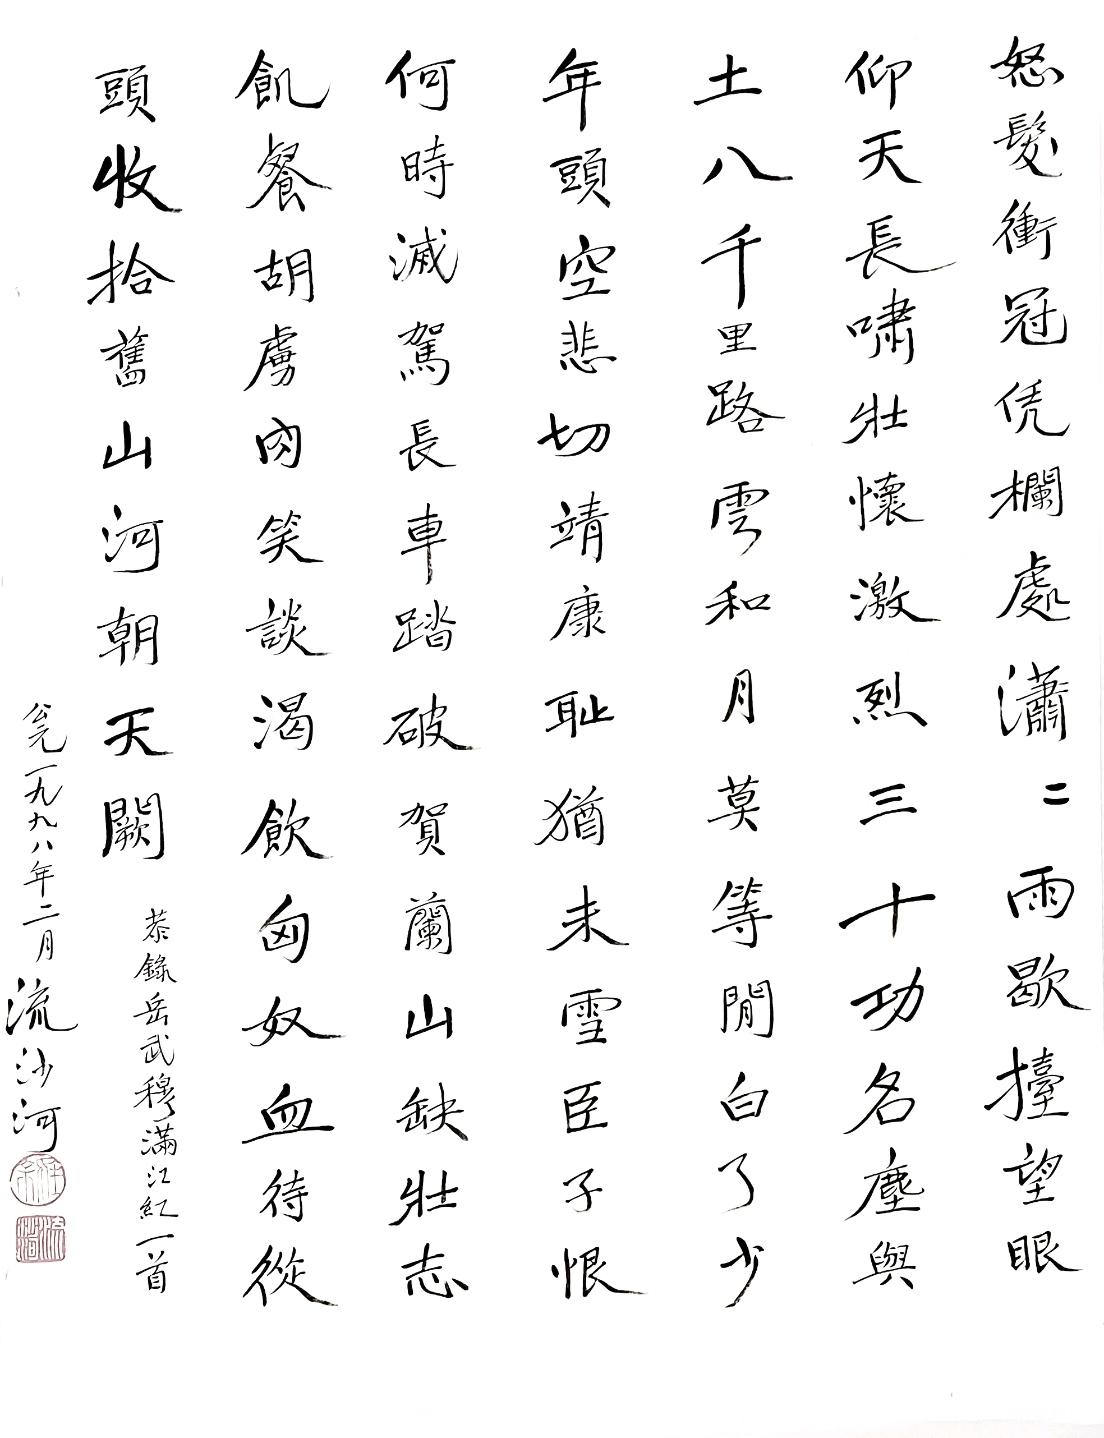 怒髮衝冠凭欄處瀟〻雨歇擡望眼
仰天長嘯壯懷激烈三十功名塵與
土八千里路雲和月莫等閒白了少
年頭空悲切靖康耻猶未雪臣子恨
何時滅駕長車踏破賀蘭山缺壯志
飢餐胡虜肉笑談渴飲匈奴血待從
頭收拾舊山河朝天闕
恭錄岳武穆滿江紅一首
公元一九九八年二月流沙河
流沙河